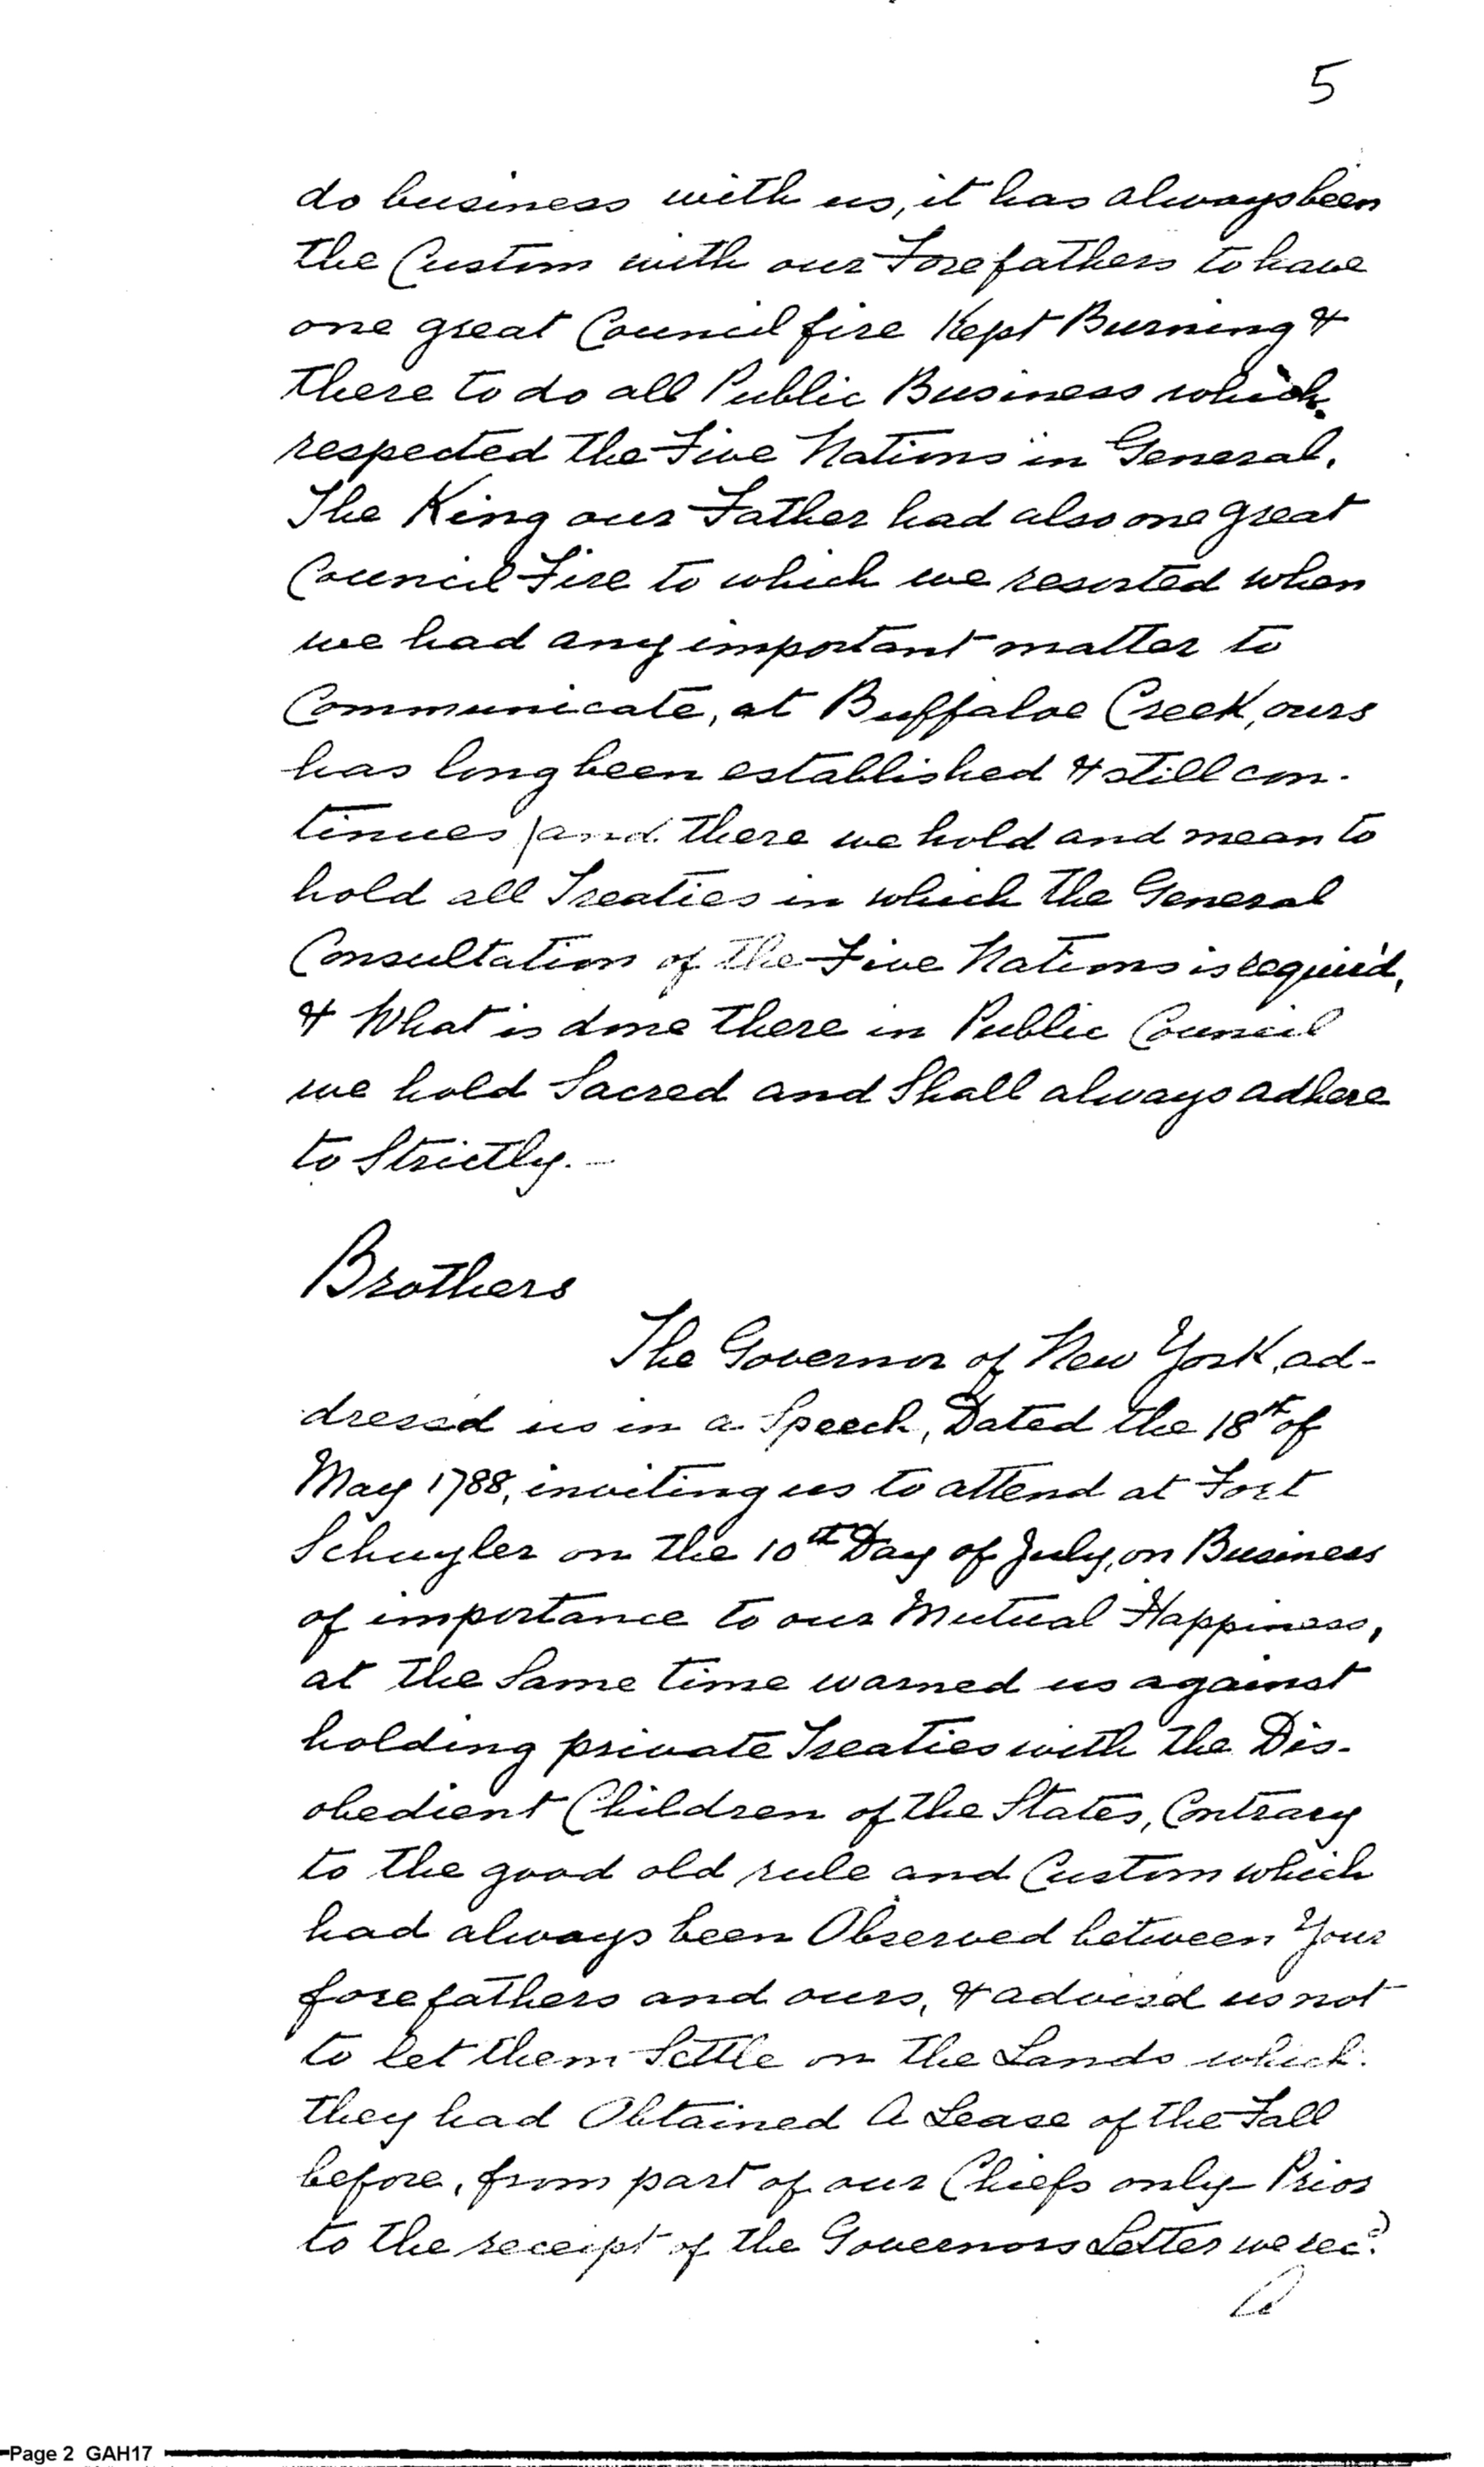 5
do business with us, it has always been
the Custom with our Forefathers to have
one great Council fire Kept Burning &
there to do all Public Business which
respected the Five Nations in General.
The King our Father had also one great
Council Fire to which we resorted when
we had any important matter to
Communicate, at Buffaloe Creek, ours
has long been established & still con-
tinues and there we hold and mean to
hold all Treaties in which the General
Consultation of the Five Nations is requir'd,
& What is done there in Public Council
we hold Sacred and Shall always adhere
to Strictly. -
Brothers
The Governor of New York, ad-
dress'd us in a Speech, Dated the 18th of
May 1788, inviting us to attend at Fort
Schuyler on the 10th Day of July, on Business
of importance to our Mutual Happiness,
at the Same time warned us against
holding private Treaties with the Dis-
obedient Children of the States, Contrary
to the good old rule and Custom which
had always been Observed between Your
forefathers and ours, & advis'd us not
to let them Settle on the Lands which
they had Obtained A Lease of the Fall
before, from part of our Chiefs only - Prior
to the receipt of the Governors Letter we rec'd
a
Page 2 GAH17